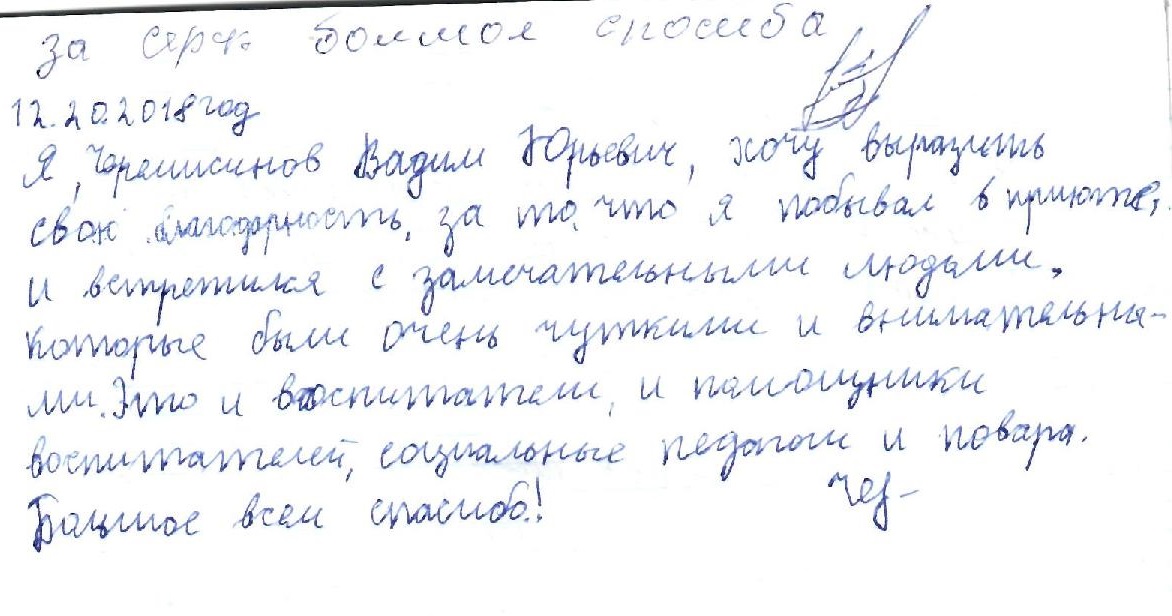 за боллшол спосиба
12.20.2018 год
Я, Черемисинов Вадим Юрьевич, хочу выразить
свою благодарность, за то, что я побывал в приюте,
и встретился с замечательными людьми,
которые были очень чуткими и внимательны-
ми. Это и воспитатели, и помощники
воспитателей, социальные педагоги и повара.
Большое всем спасибо!